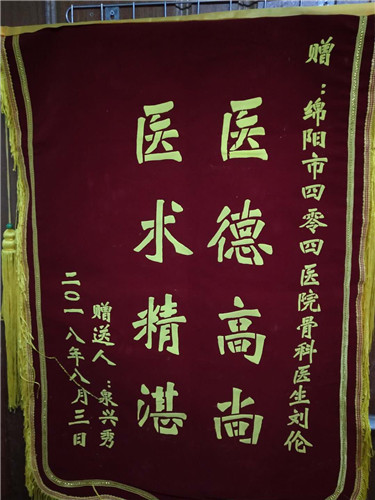 赠：绵阳市四零四医院骨科医生刘伦
医德高尚
医求精湛
赠送人：泉兴秀
二〇一八年八月三日